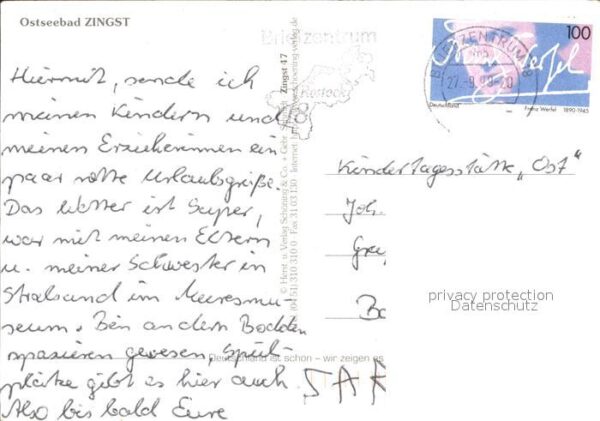 Ostseebad ZINGST
Hiermit, sende ich
meinen Kindern und
meinen Erzieherinnen ein
paar nette Urlaubsgrüße.
Das Wetter ist Super,
war mit meinen Eltern
u. meiner Schwester in
Stralsund im Meeresmu-
seum. Bin an dem Bodden
spazieren gewesen, Spiel-
plätze gibt es hier auch.
Also bis bald Eure
SA
Briefzentrum
Rostock
18
Zingst 47
© Herst. u. Verlag Schöning & Co. + Gebr.
(04 51) 310 310 Fax 31 03 130 Internet:
Deutschland ist schon – wir zeigen es
BRIEFZENTRUM 18
27.-9.98-20
100
Deutschland
Franz Werfel 1890-1945
Kindertagesstätte „Ost"
Joh.
Ba
privacy protection
Datenschutz